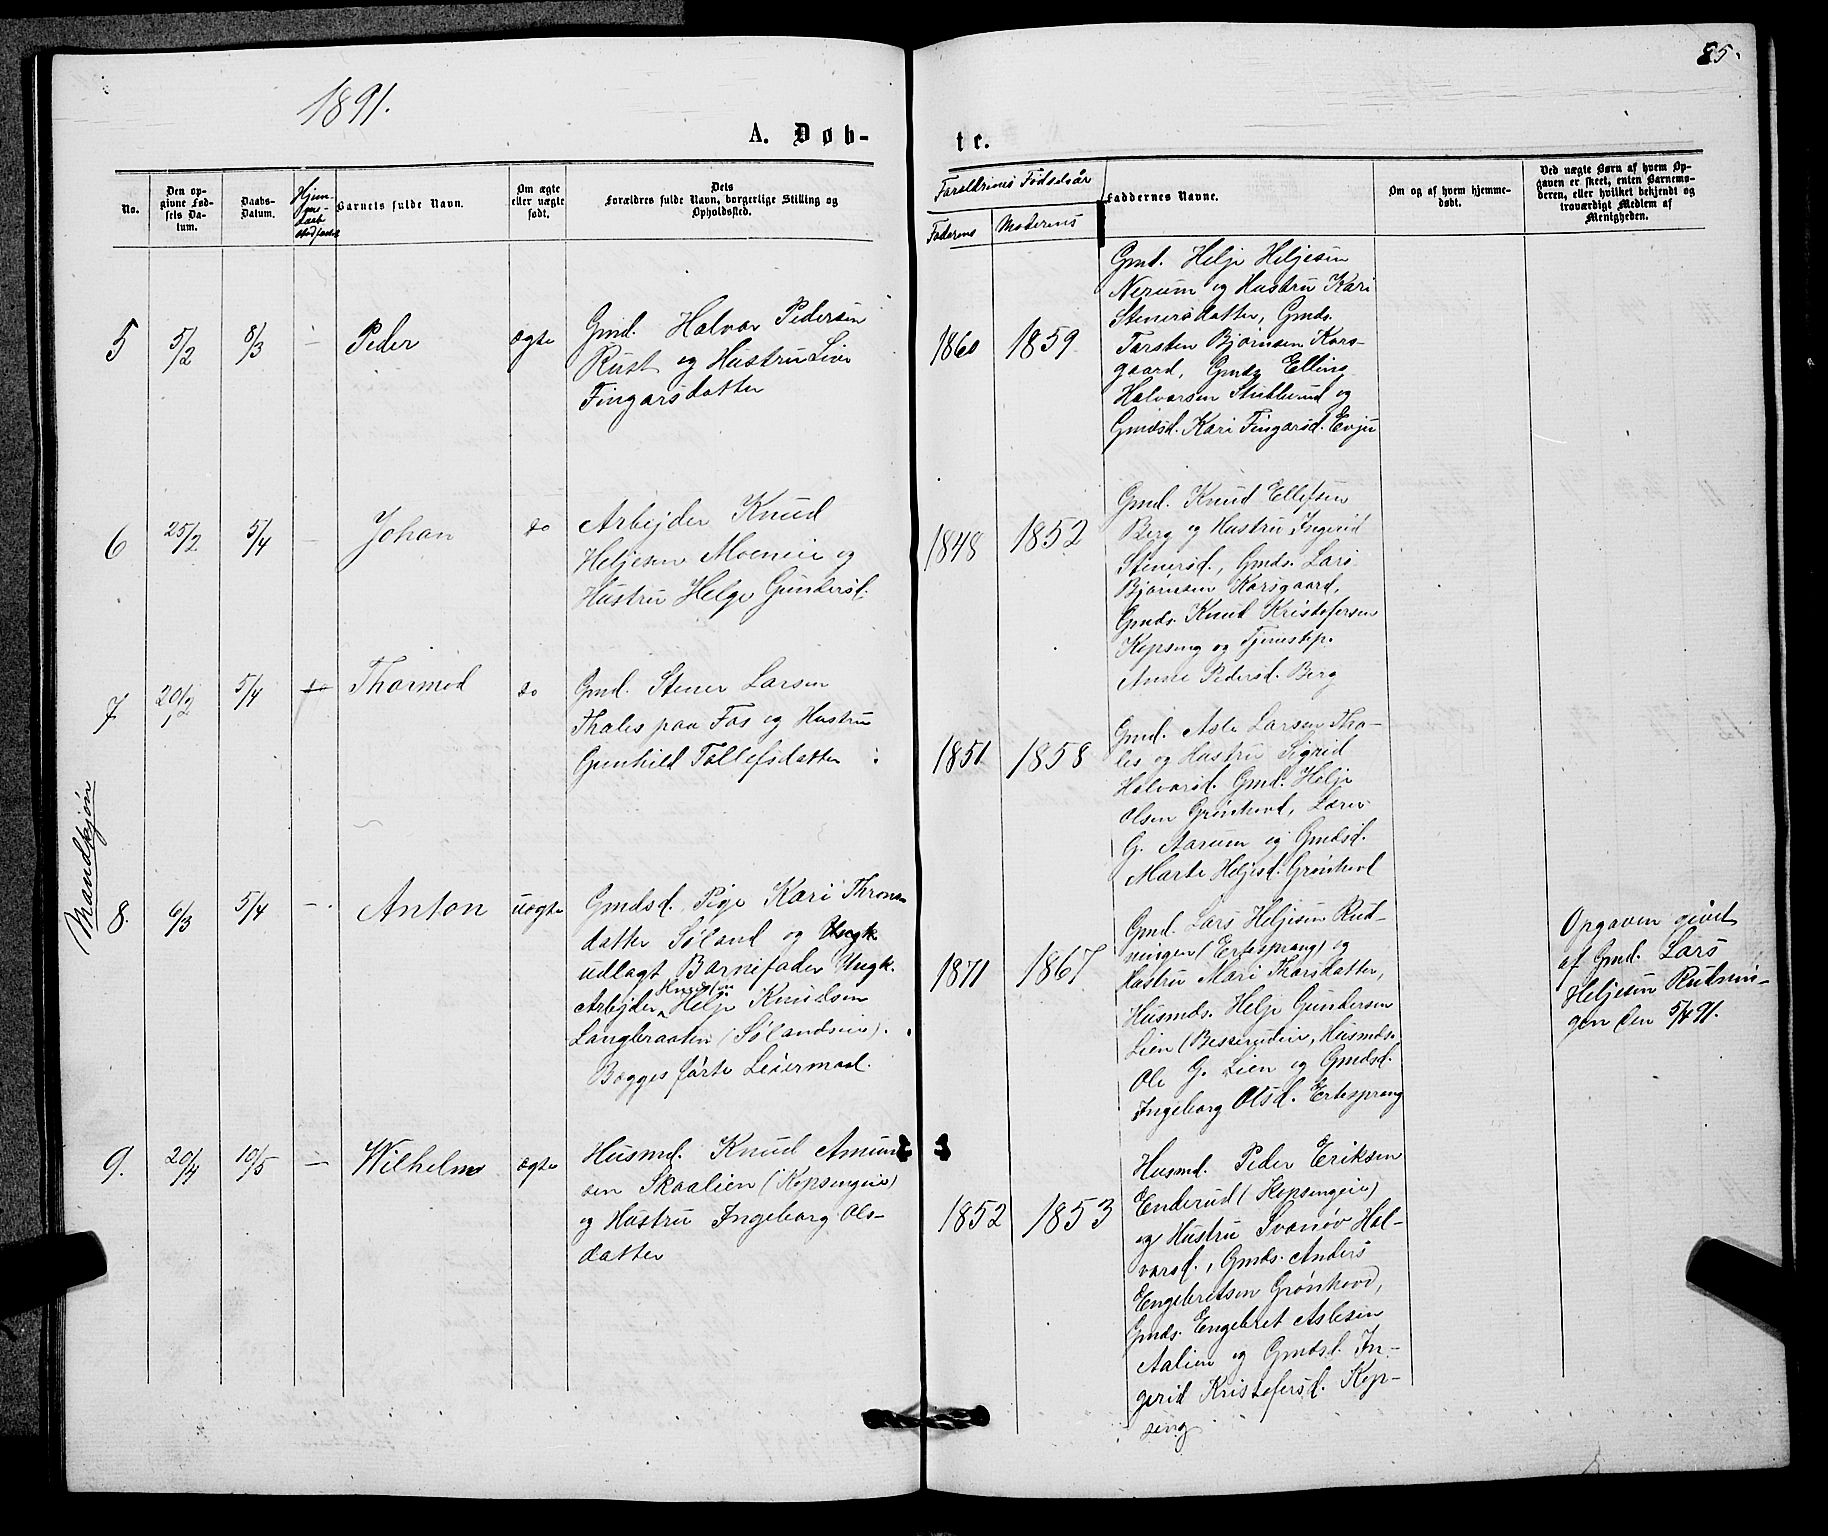 1891.
85.
A. Døb-
te.
No.
Den op-
givne Fød-
sels Da-
tum.
Daabs-
Datum.
Barnets fulde Navn.
Om ægte
eller uægte
født.
Dets
Forældres fulde Navn, borgerlige Stilling og
Opholdssted.
Forældrenes Fødselsår
Faderens
Moderens
Faddernes Navne.
Om og af hvem hjemme-
døbt.
Ved uægte Børn af hvem Op-
gaven er skeet, enten Barnemo-
deren, eller hvilket bekjendt og
troværdigt Medlem af
Menigheden.
Mandkjøn
5
5/2
8/3
-
Peder
ægte
Gmd. Halvor Pedersen
Rust og Hustru Live
Fingarsdatter
1860
1859
Gmd. Helje Heljesen
Nerum og Hustru Kari
Stenersdatter, Gmds.
Torsten Bjørnsen Kors-
gaard, Gmds Elling
Halvorsen Stublerud og
Gmdsd. Kari Fingarsd. Evju
6
25/2
5/4
-
Johan
do
Arbejder Knud
Heljesen Moeneie og
Hustru Helge Gundersd.
1848
1852
Gmd. Knud Ellefsen
Berg og Hustru Ingerid
Stenersd., Gmds. Lars
Bjørnsen Korsgaard,
Gmds. Knud Kristofersen
Kopseng og Tjenestep.
Anne Pedersd. Berg
7
20/2
5/4
Thormod
do
Gmd. Stener Larsen
Tholes paa Fos og Hustru
Gunhild Tollefsdatter
1851
1858
Gmd. Asle Larsen Tho-
les og Hustru Sigrid
Halvorsd. Gmd. Helje
Olsen Grønhovd, Lærer
G. Aarum og Gmdsd.
Marte Heljesd. Grønhovd
8.
6/3
5/4
-
Anton
uægte
Gmdsd. Pige Kari Throns
datter Søland og Ungk
udlagt Barnefader Ungk.
Arbejder Helje Knudsen
Langbraaten (Sølandseie).
Begges første Leiermaal.
1871
1867
Gmd. Lars Heljesen Rud-
ningen (Ertesprang) og
Hustru Mari Thorsdatter,
Husmds. Helje Gundersen
Lien (Besserudeie, Husmds.
Ole G. Lien og Gmdsd.
Ingeborg Olsd. Ertesprang
Opgaven givet
af Gmd. Lars
Heljesen Rudnin-
gen den 5/4 91.
9.
20/4
10/5
-
Wilhelm
ægte
Husmd. Knud Amund
sen Skaalien (Kopsengeie)
og Hustru Ingeborg Ols-
datter
1852
1853
Husmd. Peder Eriksen
Enderud (Kopsengeie)
og Hustru Svanøv Hal-
vorsd., Gmds. Anders
Engebretsen Grønhovd,
Gmds. Engebret Aslesen
Aalien og Gmdsd. In-
gerid Kristofersd. Kop-
seng